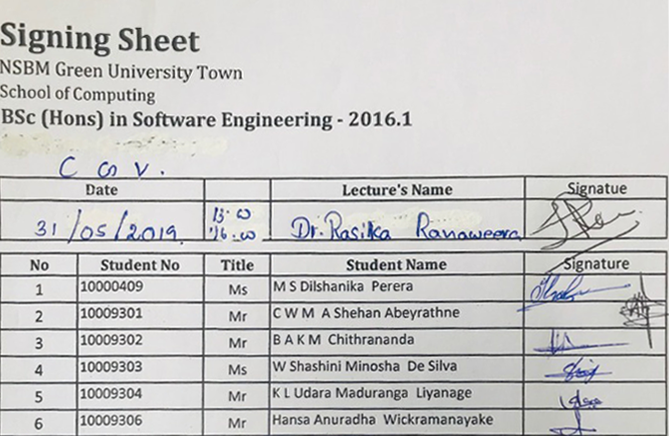 Signing Sheet
NSBM Green University Town
School of Computing
BSc (Hons) in Software Engineering - 2016.1
Date Lecture's Name Signatue
31/05/2019 Dr. Rasika Ranaweera
No Student No Title Student Name Signature
1 10000409 Ms M S Dilshanika Perera
2 10009301 Mr C W M A Shehan Abeyrathne
3 10009302 Mr B A K M Chithrananda
4 10009303 Ms W Shashini Minosha De Silva
5 10009304 Mr K L Udara Maduranga Liyanage
6 10009306 Mr Hansa Anuradha Wickramanayake